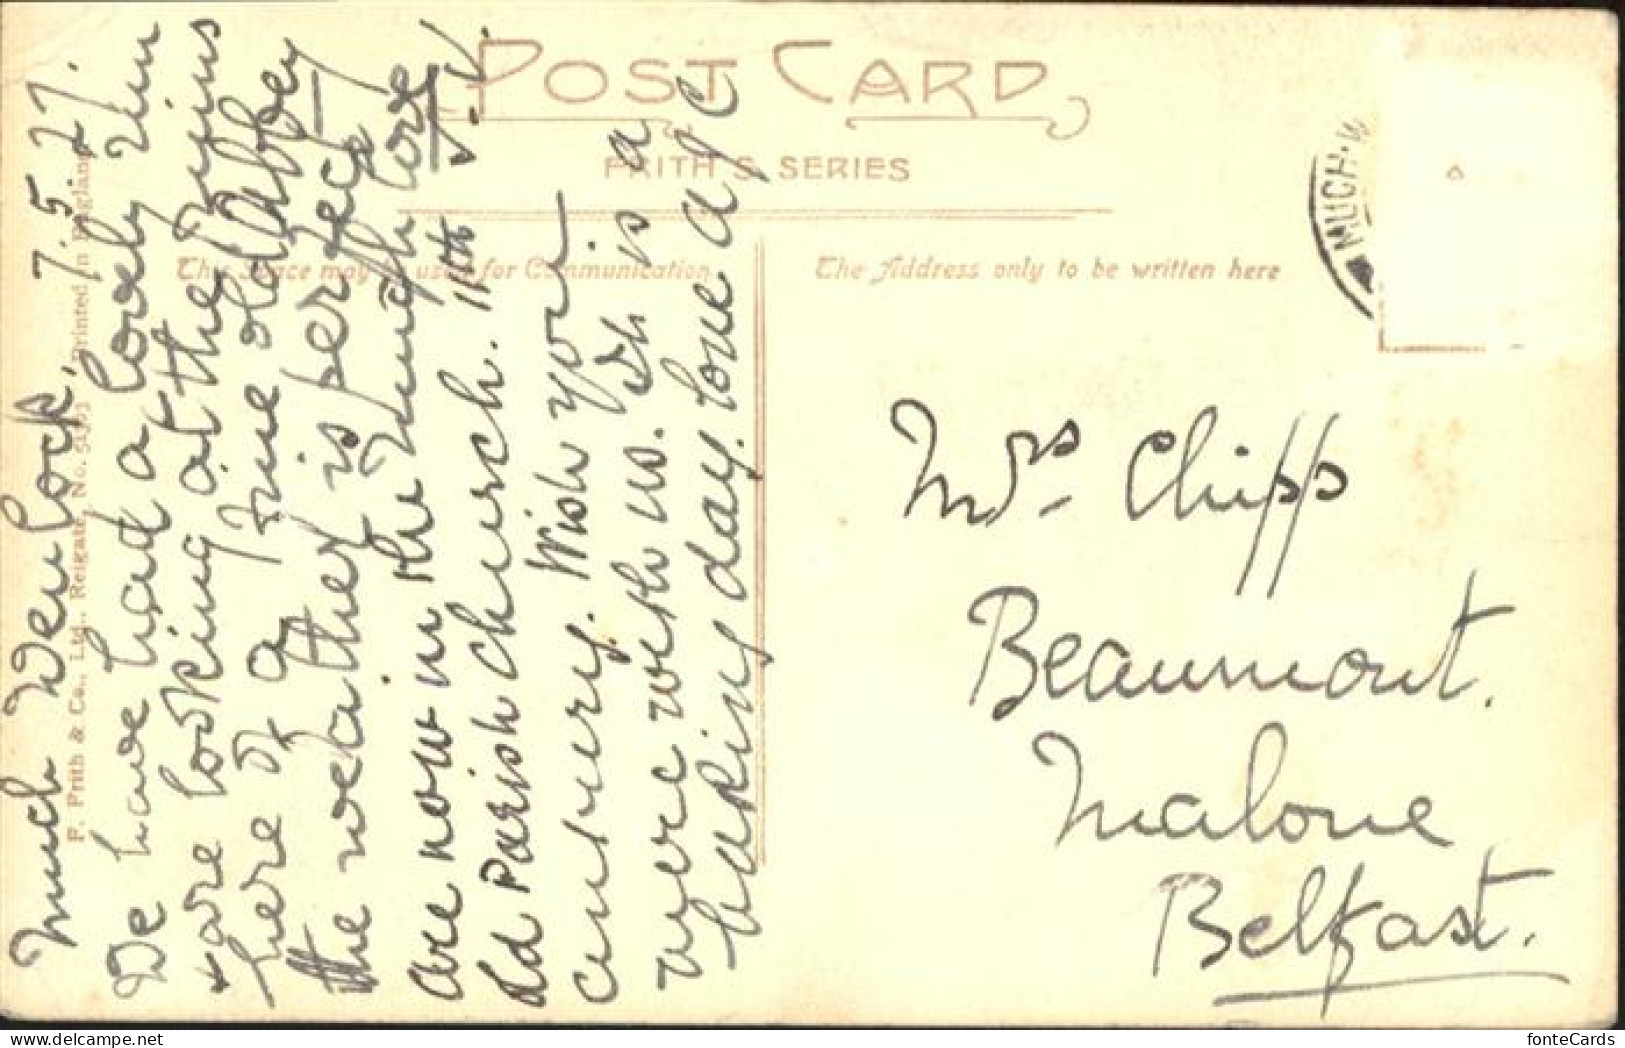 POST CARD
FRITH'S SERIES
This Space may be used for Communication.
The Address only to be written here
MUCH·W
F. Frith & Co., Ltd., Reigate, No. Printed in England
Much Wenlock, 7.5.27.
We have had a lovely run
+ are looking at the ruins
here of a fine old Abbey
the weather is perfect
are now in the much love
old Parish church. 11th
century. Wish you
were with us. Wh is a
baking day. love
Mrs Chipp
Beaumont.
Malone
Belfast.
fonteCards